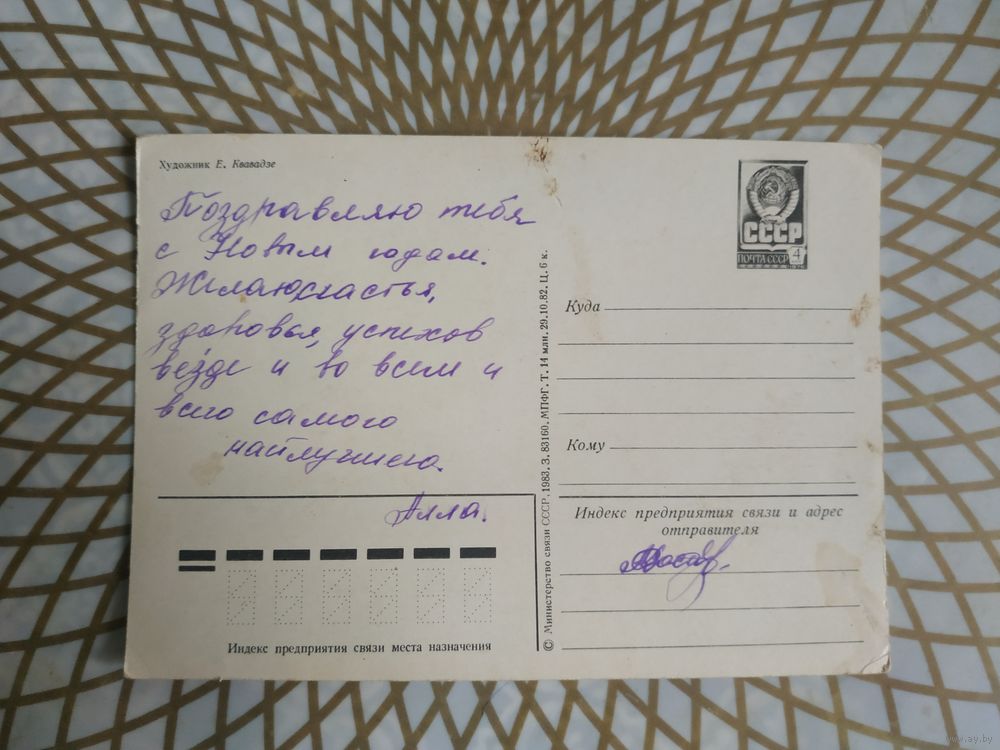 Художник Е. Квавадзе
Поздравляю тебя
с Новым годам.
Желаю счастья,
здоровья, успехов
везде и во всем и
всего самого
наилучшего.
Алла.
Индекс предприятия связи места назначения
© Министерство связи СССР. 1983. З. 83160. МПФГ. Т. 14 млн. 29.10.82. Ц. 6 к.
СССР
ПОЧТА СССР 4
Куда
Кому
Индекс предприятия связи и адрес
отправителя
www.ay.by